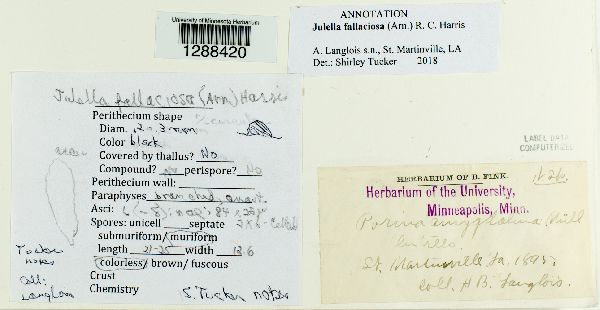 University of Minnesota Herbarium
1288420
ANNOTATION
Julella fallaciosa (Arn.) R. C. Harris
A. Langlois s.n., St. Martinville, LA
Det.: Shirley Tucker 2018
Julella fallaciosa (Arn.) Harris
Perithecium shape
Diam. .2-.3 mm
Color black
Covered by thallus? No
Compound? no perispore? No
Perithecium wall:
Paraphyses branched, anast.
Asci:
Spores: unicell septate
submuriform/ muriform
length 21-25 width
colorless/ brown/ fuscous
Crust
Chemistry S. Tucker notes
Tucker
notes
Coll:
Langlois
LABEL DATA
COMPUTERIZED
HERBARIUM OF B. FINK.
Herbarium of the University,
Minneapolis, Minn.
Porina
St. Martinville, La, 1895.
Coll. Langlois.